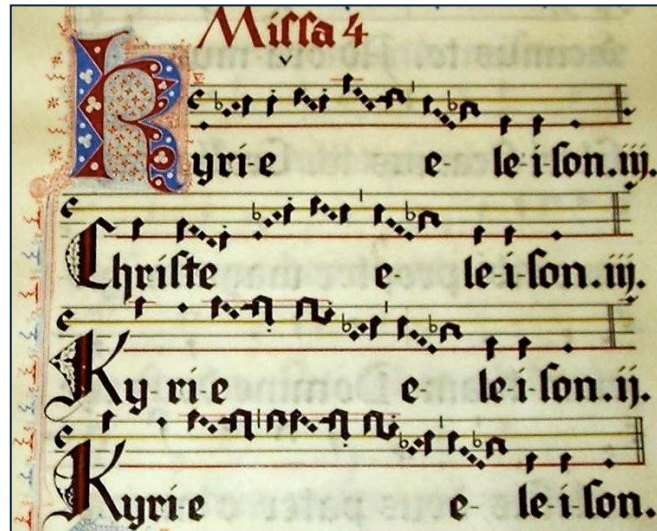 Missa 4
Kyri-e e- le-i-son.iij.
Christe e- le-i-son.iij.
Ky-ri-e e- le-i-son.ij.
Kyri-e e- le-i-son.